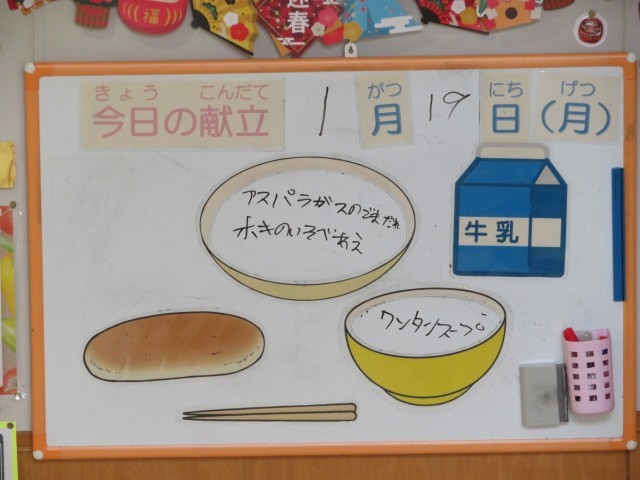 迎春
福
きょう こんだて
今日の献立
1
がつ
月
19
にち
日
げつ
(月)
アスパラガスのごまだれ
ホキのいそべあえ
牛乳
ワンタンスープ